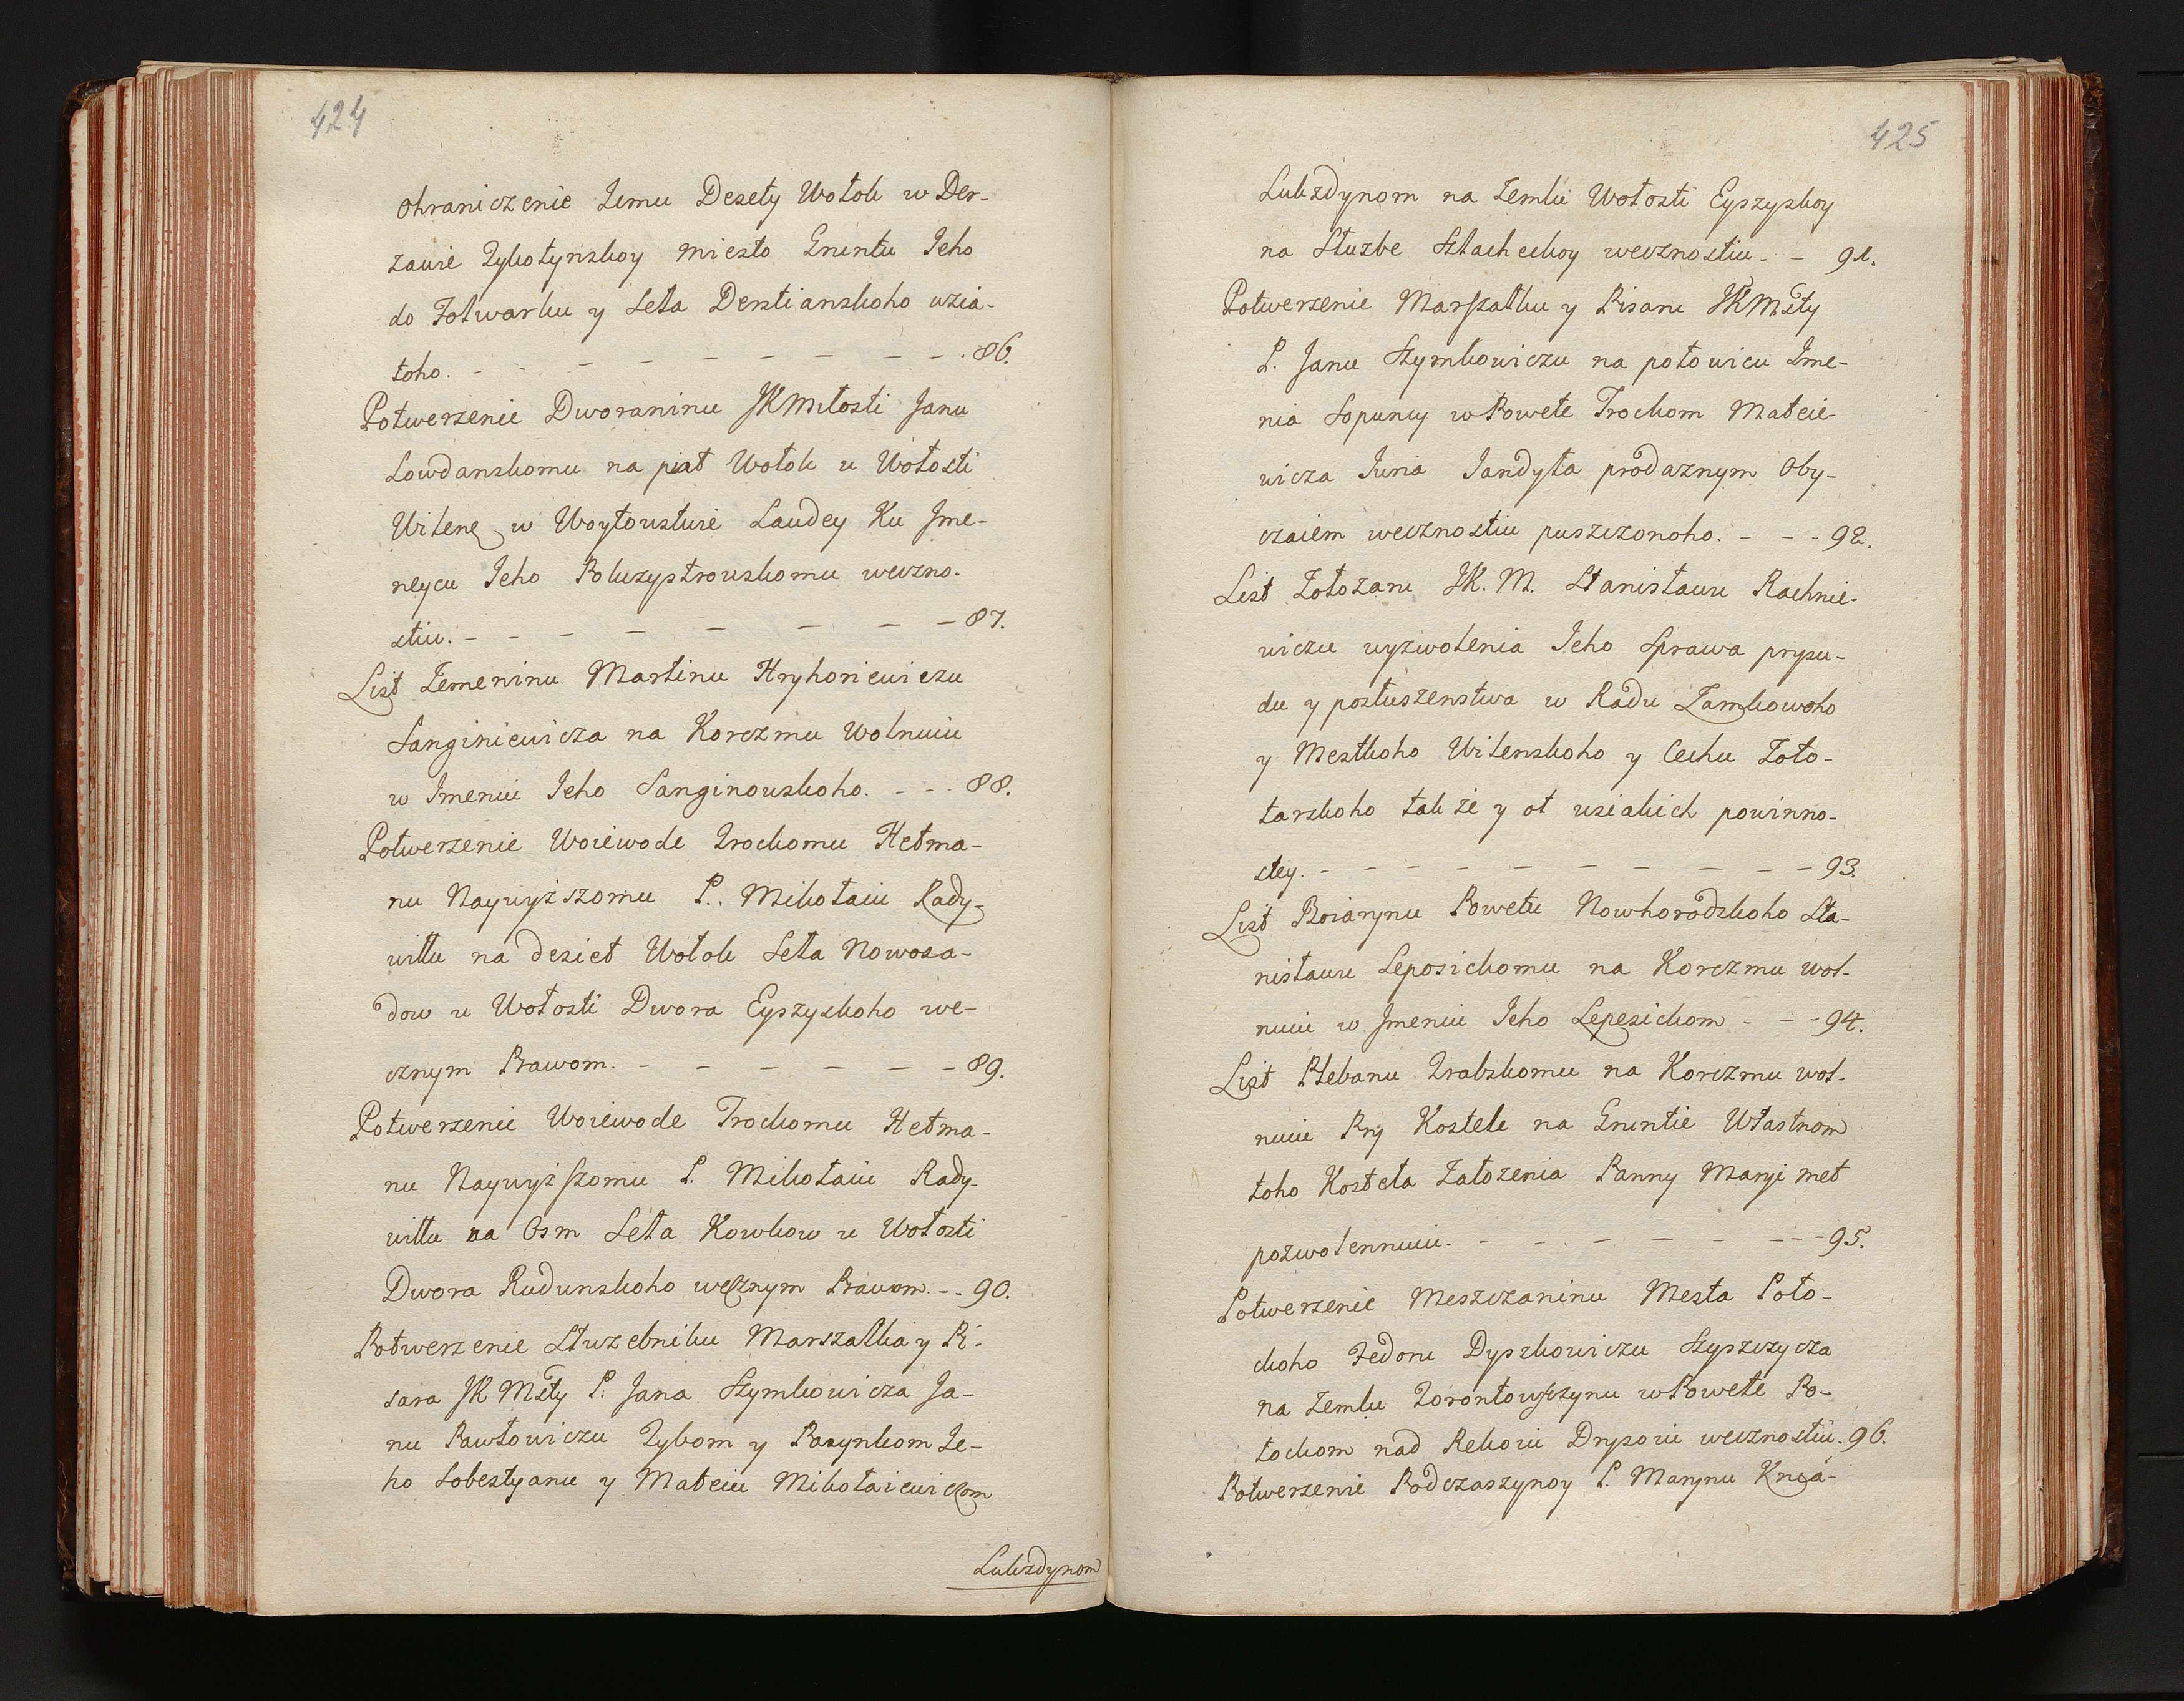 424
ohraniczenie Jemu Desety Wołok w Der-
zawe Zyholynskoy miesto Gruntu Jeho
do Fołwarku y Seła Derstianskoho wzia-
toho. - - - - - - - - 86.
Potwerzenie Dworaninu JKMiłosti Janu
Lowdanskomu na piat Wołok u Wołosti
Wilene w Woytowstwie Laudey Ku Jme-
neycu Jeho Pokuzystrowskomu weczno-
stiu. - - - - - - - 87.
List Zemeninu Martinu Hryhoriewiczu
Sanginiewicza na Korczmu Wolnuiu
w Jmeniu Jeho Sanginowskoho. - - - 88.
Potwerzenie Woiewode Trockomu Hetma-
nu Naywyższomu P. Mikołaiu Rady-
wiłłu na desiet Wołok Seła Nowosa-
dow u Wołosti Dwora Eyszyskoho we-
cznym Prawom. - - - - - - 89.
Potwerzenie Woiewode Trockomu Hetma-
nu Naywyższomu P. Mikołaiu Rady-
wiłłu na Osm Seła Kowkow u Wołosti
Dwora Rudunskoho wecznym Prawom. - - 90.
Potwerzenie Służebniku Marszałka y Pi-
sara JKMsty P. Jana Szymkowicza Ja-
nu Pawłowiczu Zykom y Pasynkom Je-
ho Sobestyanu y Mateiu Mikołaiewiczom
Lukzdynom
425
Lukzdynom na Zemlu Wołosti Eyszyskoy
na Słuzbe Szlacheckoy wecznostiu - - 91.
Potwerzenie Marszałku y Pisaru JKMsty
P. Janu Szymkowiczu na połowicu Jme-
nia Sopuncy w Powete Trockom Mateie-
wicza Juria Jandyła prodaznym Oby-
czaiem wecznostiu puszczonoho. - - - 92.
List Zołozaru JK. M. Stanisławu Rachnie-
wiczu wyzwolenia Jeho Sprawa prysu-
du y posłuszenstwa w Radu Zamkowoho
y Mestkoho Wilenskoho y Cechu Zoło-
tarskoho tak że y ot wsiakich powinno-
stey. - - - - - - - - - 93.
List Boiarynu Powetu Nowhorodskoho Sta-
nisławu Leposickomu na Korczmu wol-
nuiu w Jmeniu Jeho Lepesickom - - - 94.
List Plebanu Trabskomu na Korczmu wol-
nuiu Pry Kostele na Gruntie Własnom
toho Kosteła Założenia Panny Maryi met
pozwolennuiu. - - - - - - - - 95.
Potwerzenie Meszczaninu Mesta Poło-
ckoho Fedoru Dyszkowiczu Szyszczycza
na Zemlu Zorontowszczynu w Powete Po-
łockom nad Rekoiu Drysoiu wecznostiu. 96.
Potwerzenie Podczaszynoy P. Marynu Knia-